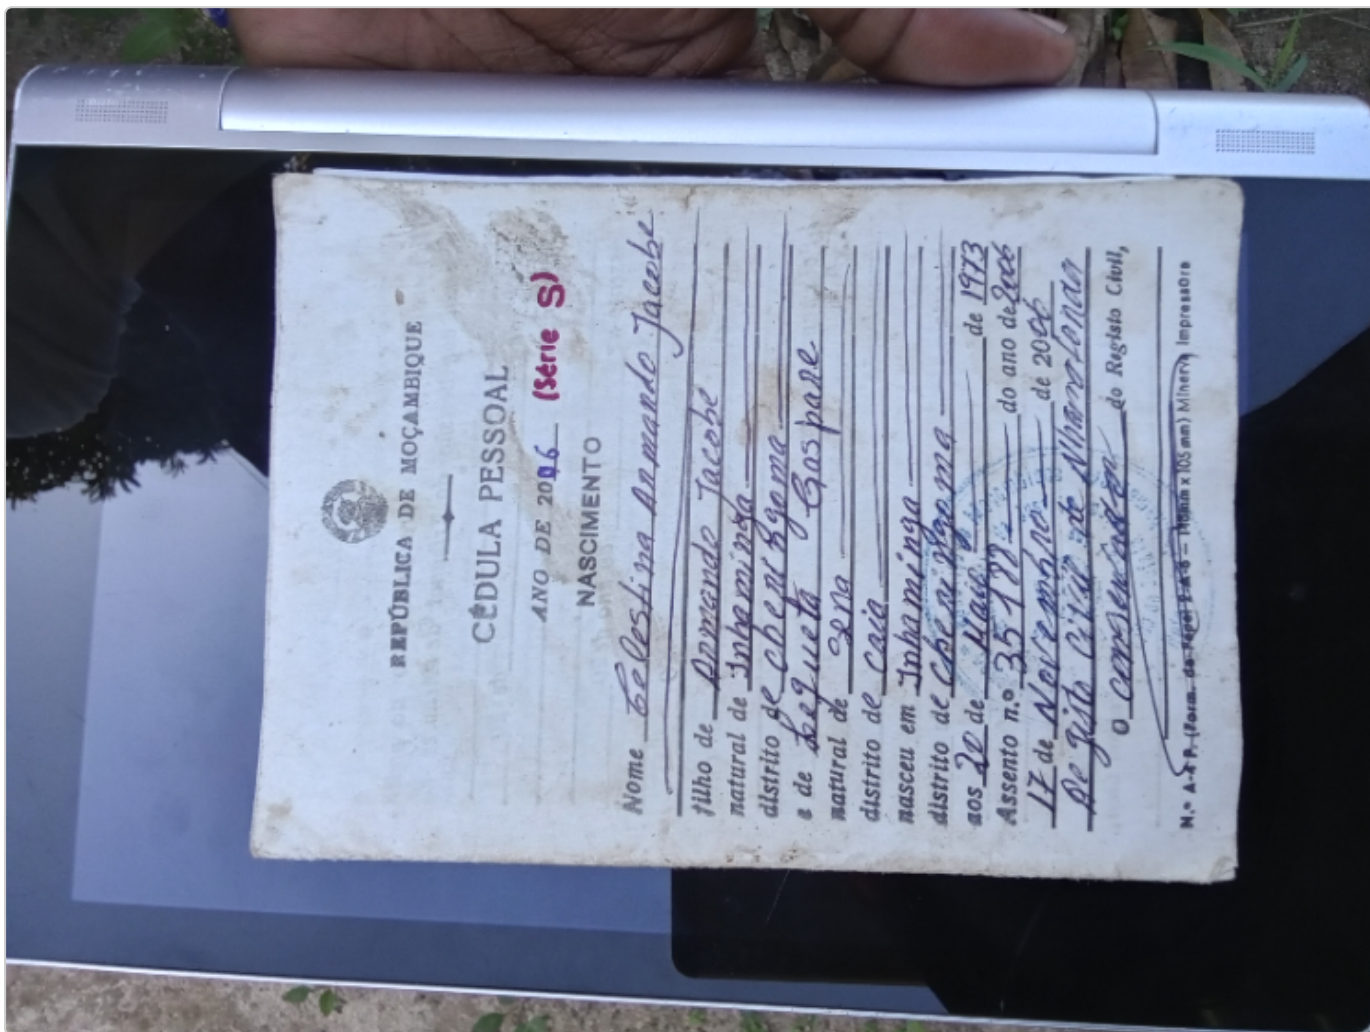 REPÚBLICA DE MOÇAMBIQUE
CÉDULA PESSOAL
ANO DE 2006 (Série S)
NASCIMENTO
Nome Celestina Armando Jacobe
filho de Armando Jacobe
natural de Inhaminga
distrito de cheringoma
e de Laqueta Gaspare
natural de Sena
distrito de caia
nasceu em Inhaminga
distrito de cheringoma
aos 20 de Maio de 1973
Assento n.º 35188 do ano de 2006
17 de Novembro de 2006
Registo Civil de
O conservador do Registo Civil,
N.º A-4 P. (Form. do Papel 2 A-6 — 148mm x 105 mm) Minerva Impressora